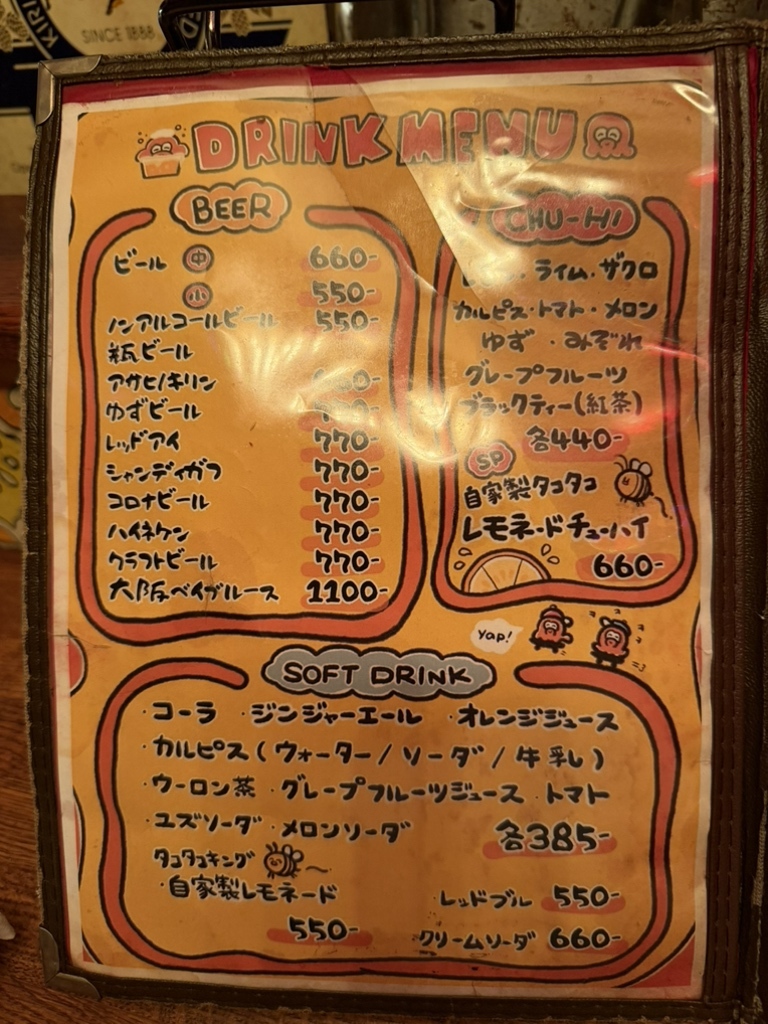 KIRI
SINCE 1888
DRINK MENU
BEER
ビール 中 660-
小 550-
ノンアルコールビール 550-
瓶ビール
アサヒ/キリン
ゆずビール
レッドアイ 770-
シャンディガフ 770-
コロナビール 770-
ハイネケン 770-
クラフトビール 770-
大阪ベイブルース 1100-
CHU-HI
ライム・ザクロ
カルピス・トマト・メロン
ゆず・みぞれ
グレープフルーツ
ブラックティー(紅茶)
各440-
SP
自家製タコタコ
レモネードチューハイ
660-
yap!
SOFT DRINK
・コーラ ・ジンジャーエール ・オレンジジュース
・カルピス(ウォーター/ソーダ/牛乳)
・ウーロン茶 ・グレープフルーツジュース ・トマト
・ユズソーダ ・メロンソーダ 各385-
タコタコキング
・自家製レモネード
550-
・レッドブル 550-
クリームソーダ 660-